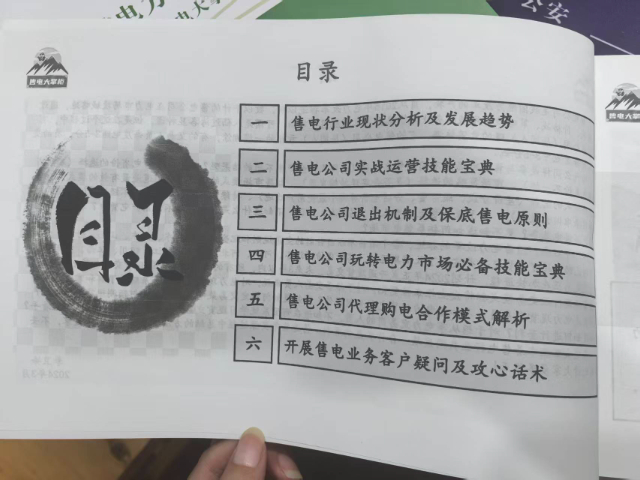 电力
电大
公安
售电大掌柜
目录
一 售电行业现状分析及发展趋势
二 售电公司实战运营技能宝典
三 售电公司退出机制及保底售电原则
四 售电公司玩转电力市场必备技能宝典
五 售电公司代理购电合作模式解析
六 开展售电业务客户疑问及攻心话术
目录
售电大掌柜